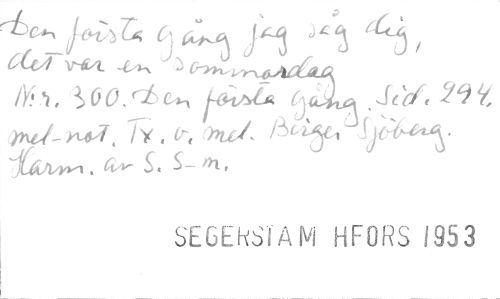 Den första gång jag såg dig,
det var en sommardag
N:r. 300. Den första gång. Sid. 294.
mel-not. Tx. o. mel. Birger Sjöberg.
Harm. av S. S-m.
SEGERSTAM HFORS 1953